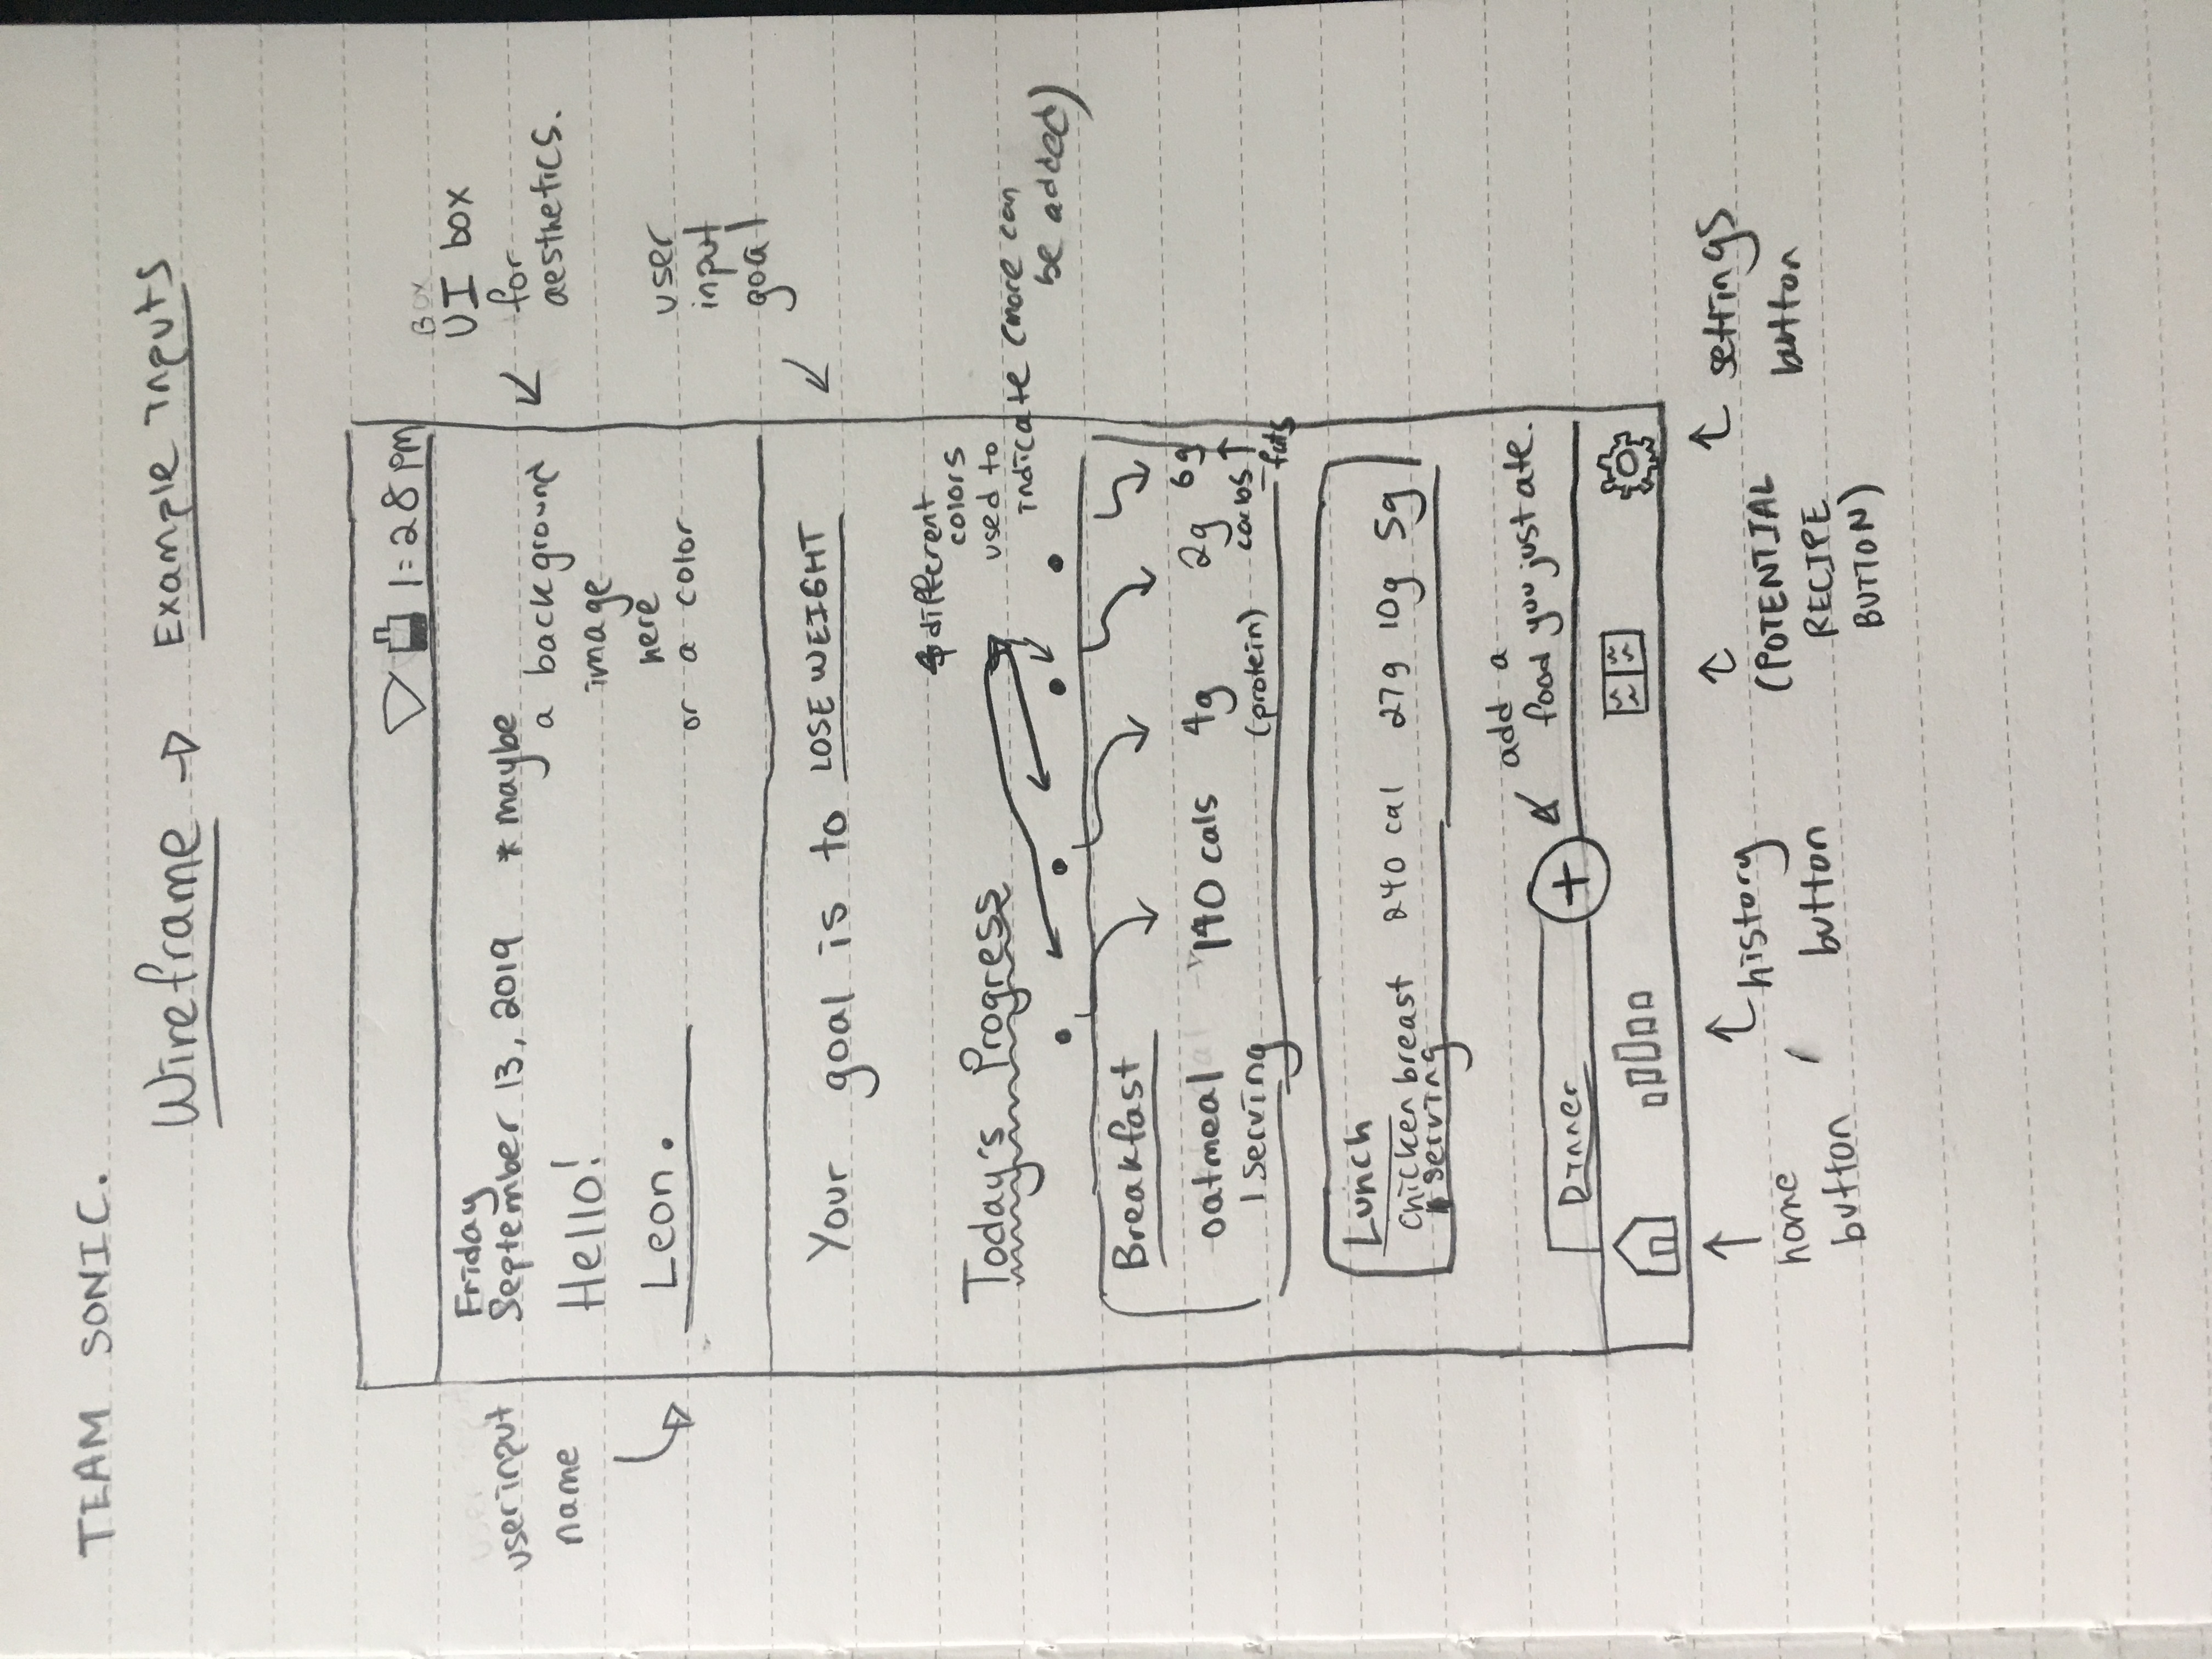 TEAM SONIC.
Wireframe → Example Inputs
1:28 PM
Friday
September 13, 2019
Hello!
Leon.
* maybe
a background
image
here
or a color
user input
name
BOX
UI box
for
aesthetics.
user
input
goal
Your goal is to LOSE WEIGHT
Today's Progress
different
colors
used to
indicate (more can
be added)
Breakfast
oatmeal 140 cals 4g 2g 6g
1 serving (protein) carbs
fats
Lunch
chicken breast 240 cal 27g 10g 5g
serving
add a
food you just ate.
Dinner +
home
button
history
button
(POTENTIAL
RECIPE
BUTTON)
settings
button